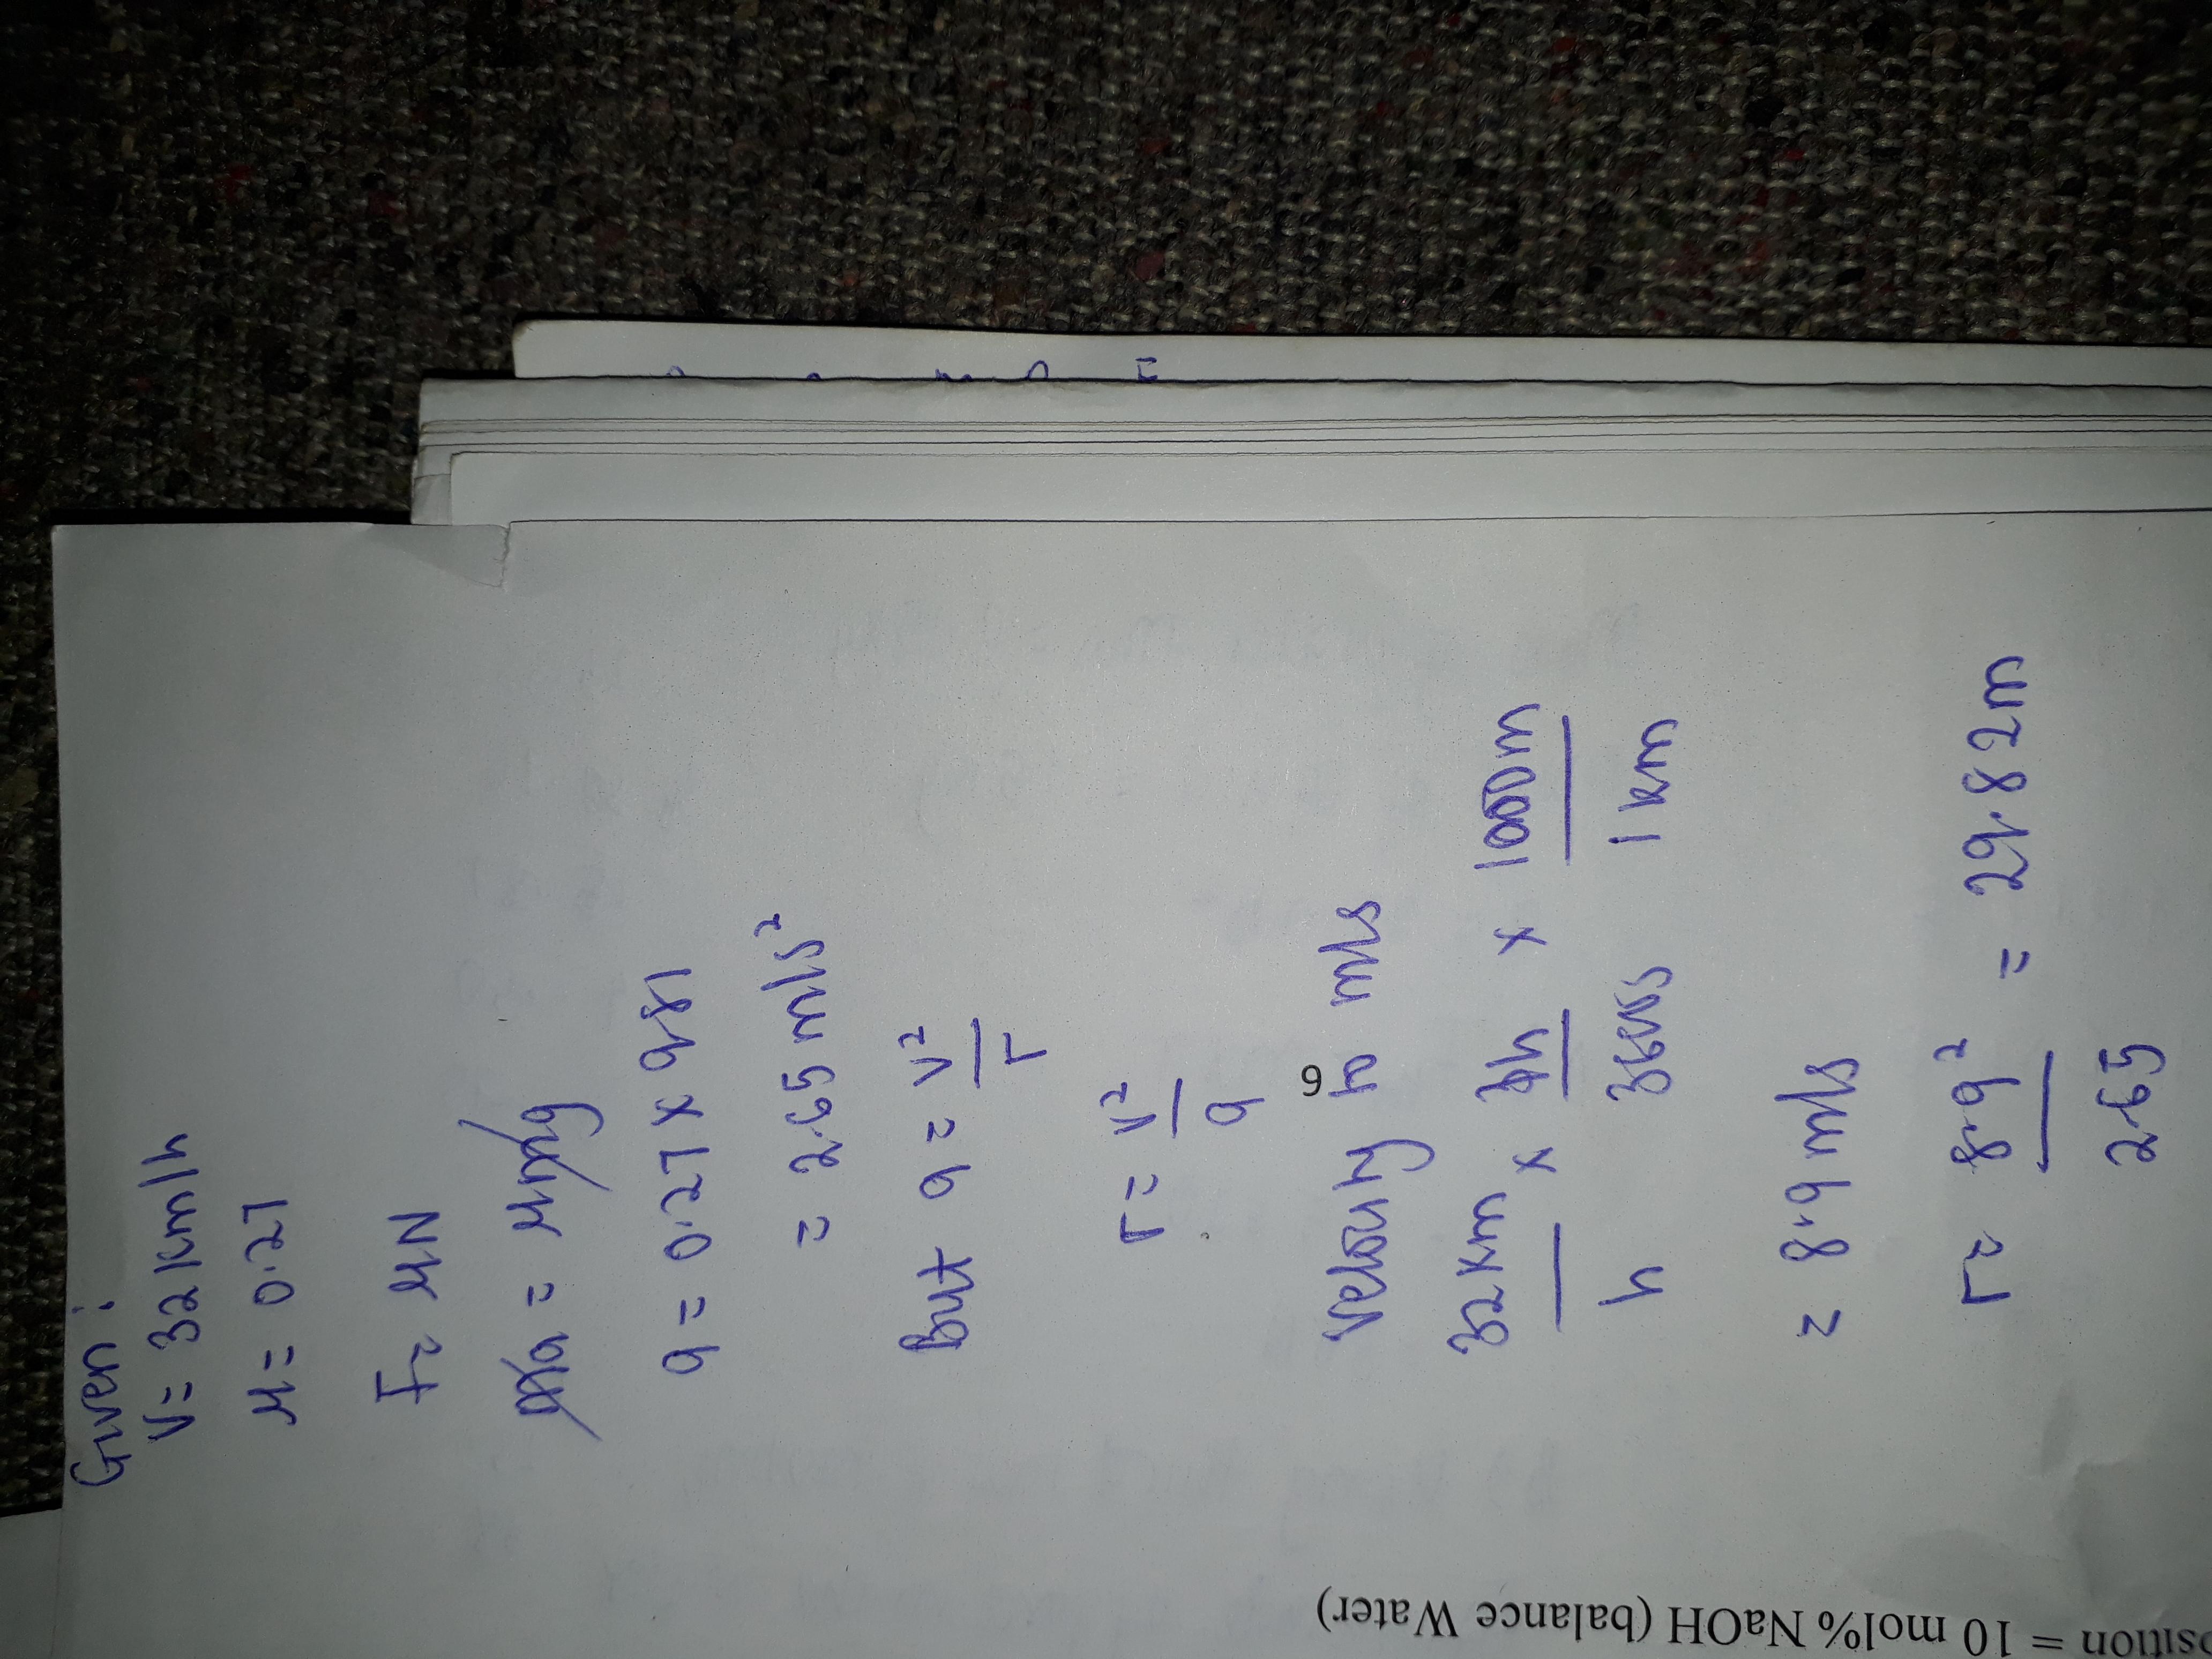 Given:
V= 32 km/h
μ= 0.27
F= μN
ma = μmg
a = 0.27 x 9.81
= 2.65 m/s²
But a = v²
r
r = v²
a
6
Velocity to m/s
32 km x 1h x 1000m
h 3600s 1 km
= 8.9 m/s
r= 8.9² = 29.82m
2.65
osition = 10 mol% NaOH (balance Water)